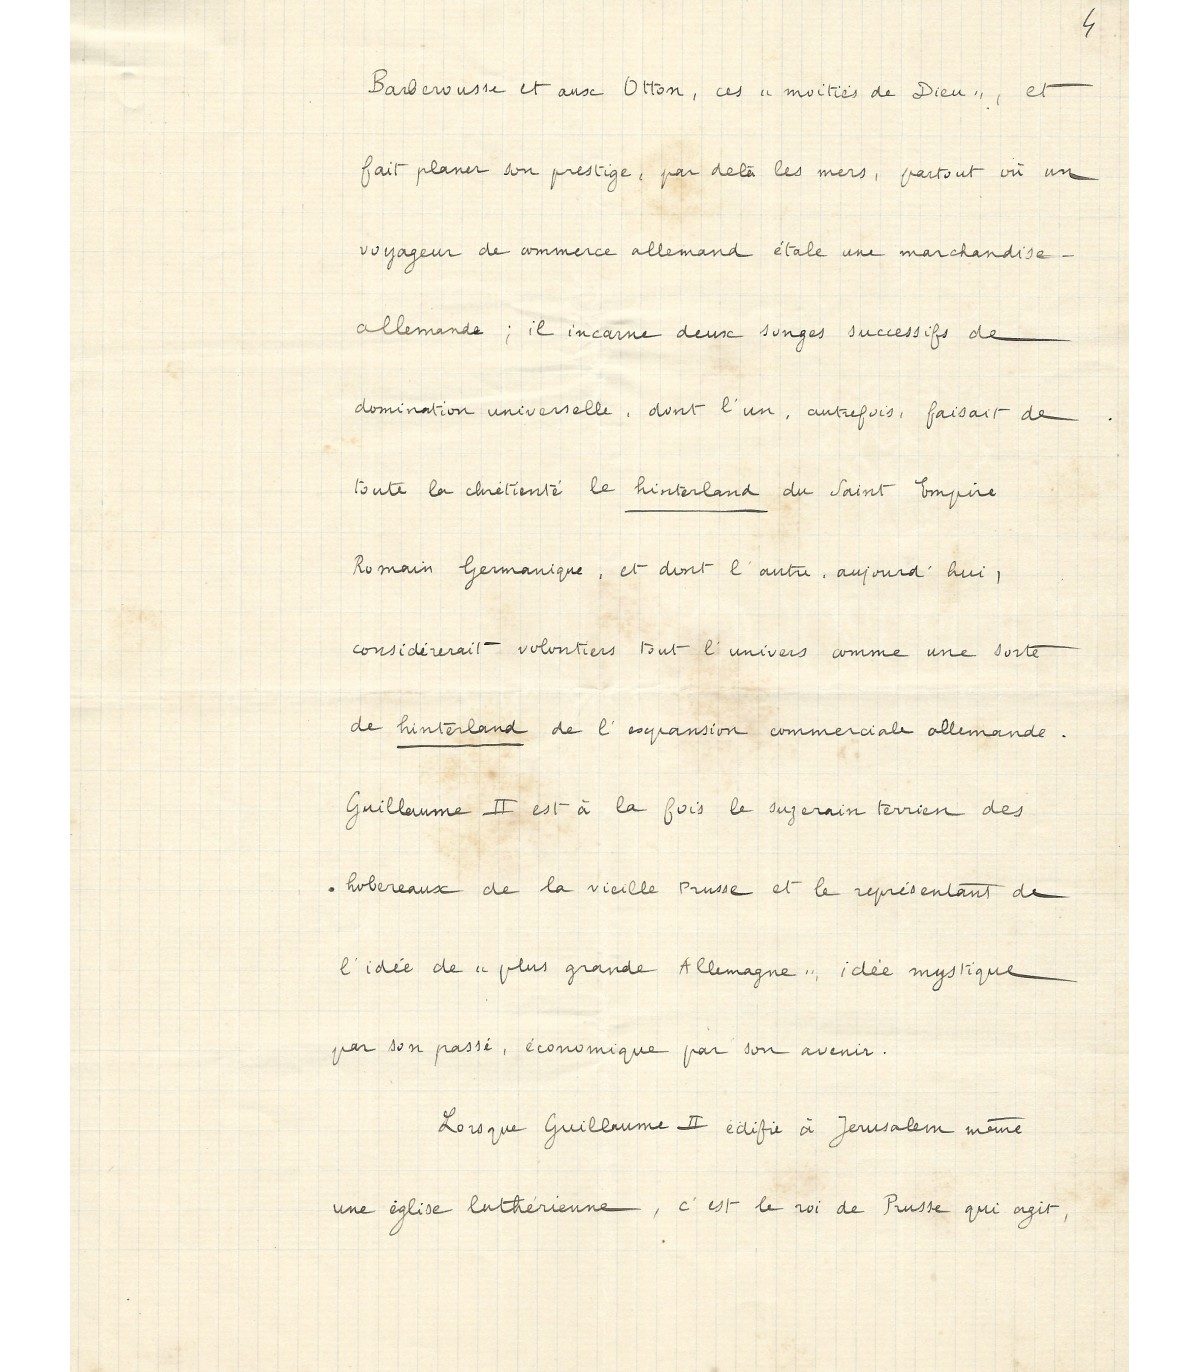 4
Barberousse et aux Otton, ces "moitiés de Dieu", et
fait planer son prestige, par delà les mers, partout où un
voyageur de commerce allemand étale une marchandise
allemande ; il incarne deux songes successifs de
domination universelle, dont l'un, autrefois, faisait de
toute la chrétienté le hinterland du Saint Empire
Romain Germanique, et dont l'autre, aujourd'hui,
considérerait volontiers tout l'univers comme une sorte
de hinterland de l'expansion commerciale allemande.
Guillaume II est à la fois le suzerain terrien des
hobereaux de la vieille Prusse et le représentant de
l'idée de "plus grande Allemagne", idée mystique
par son passé, économique par son avenir.
Lorsque Guillaume II édifie à Jerusalem même
une église luthérienne, c'est le roi de Prusse qui agit,